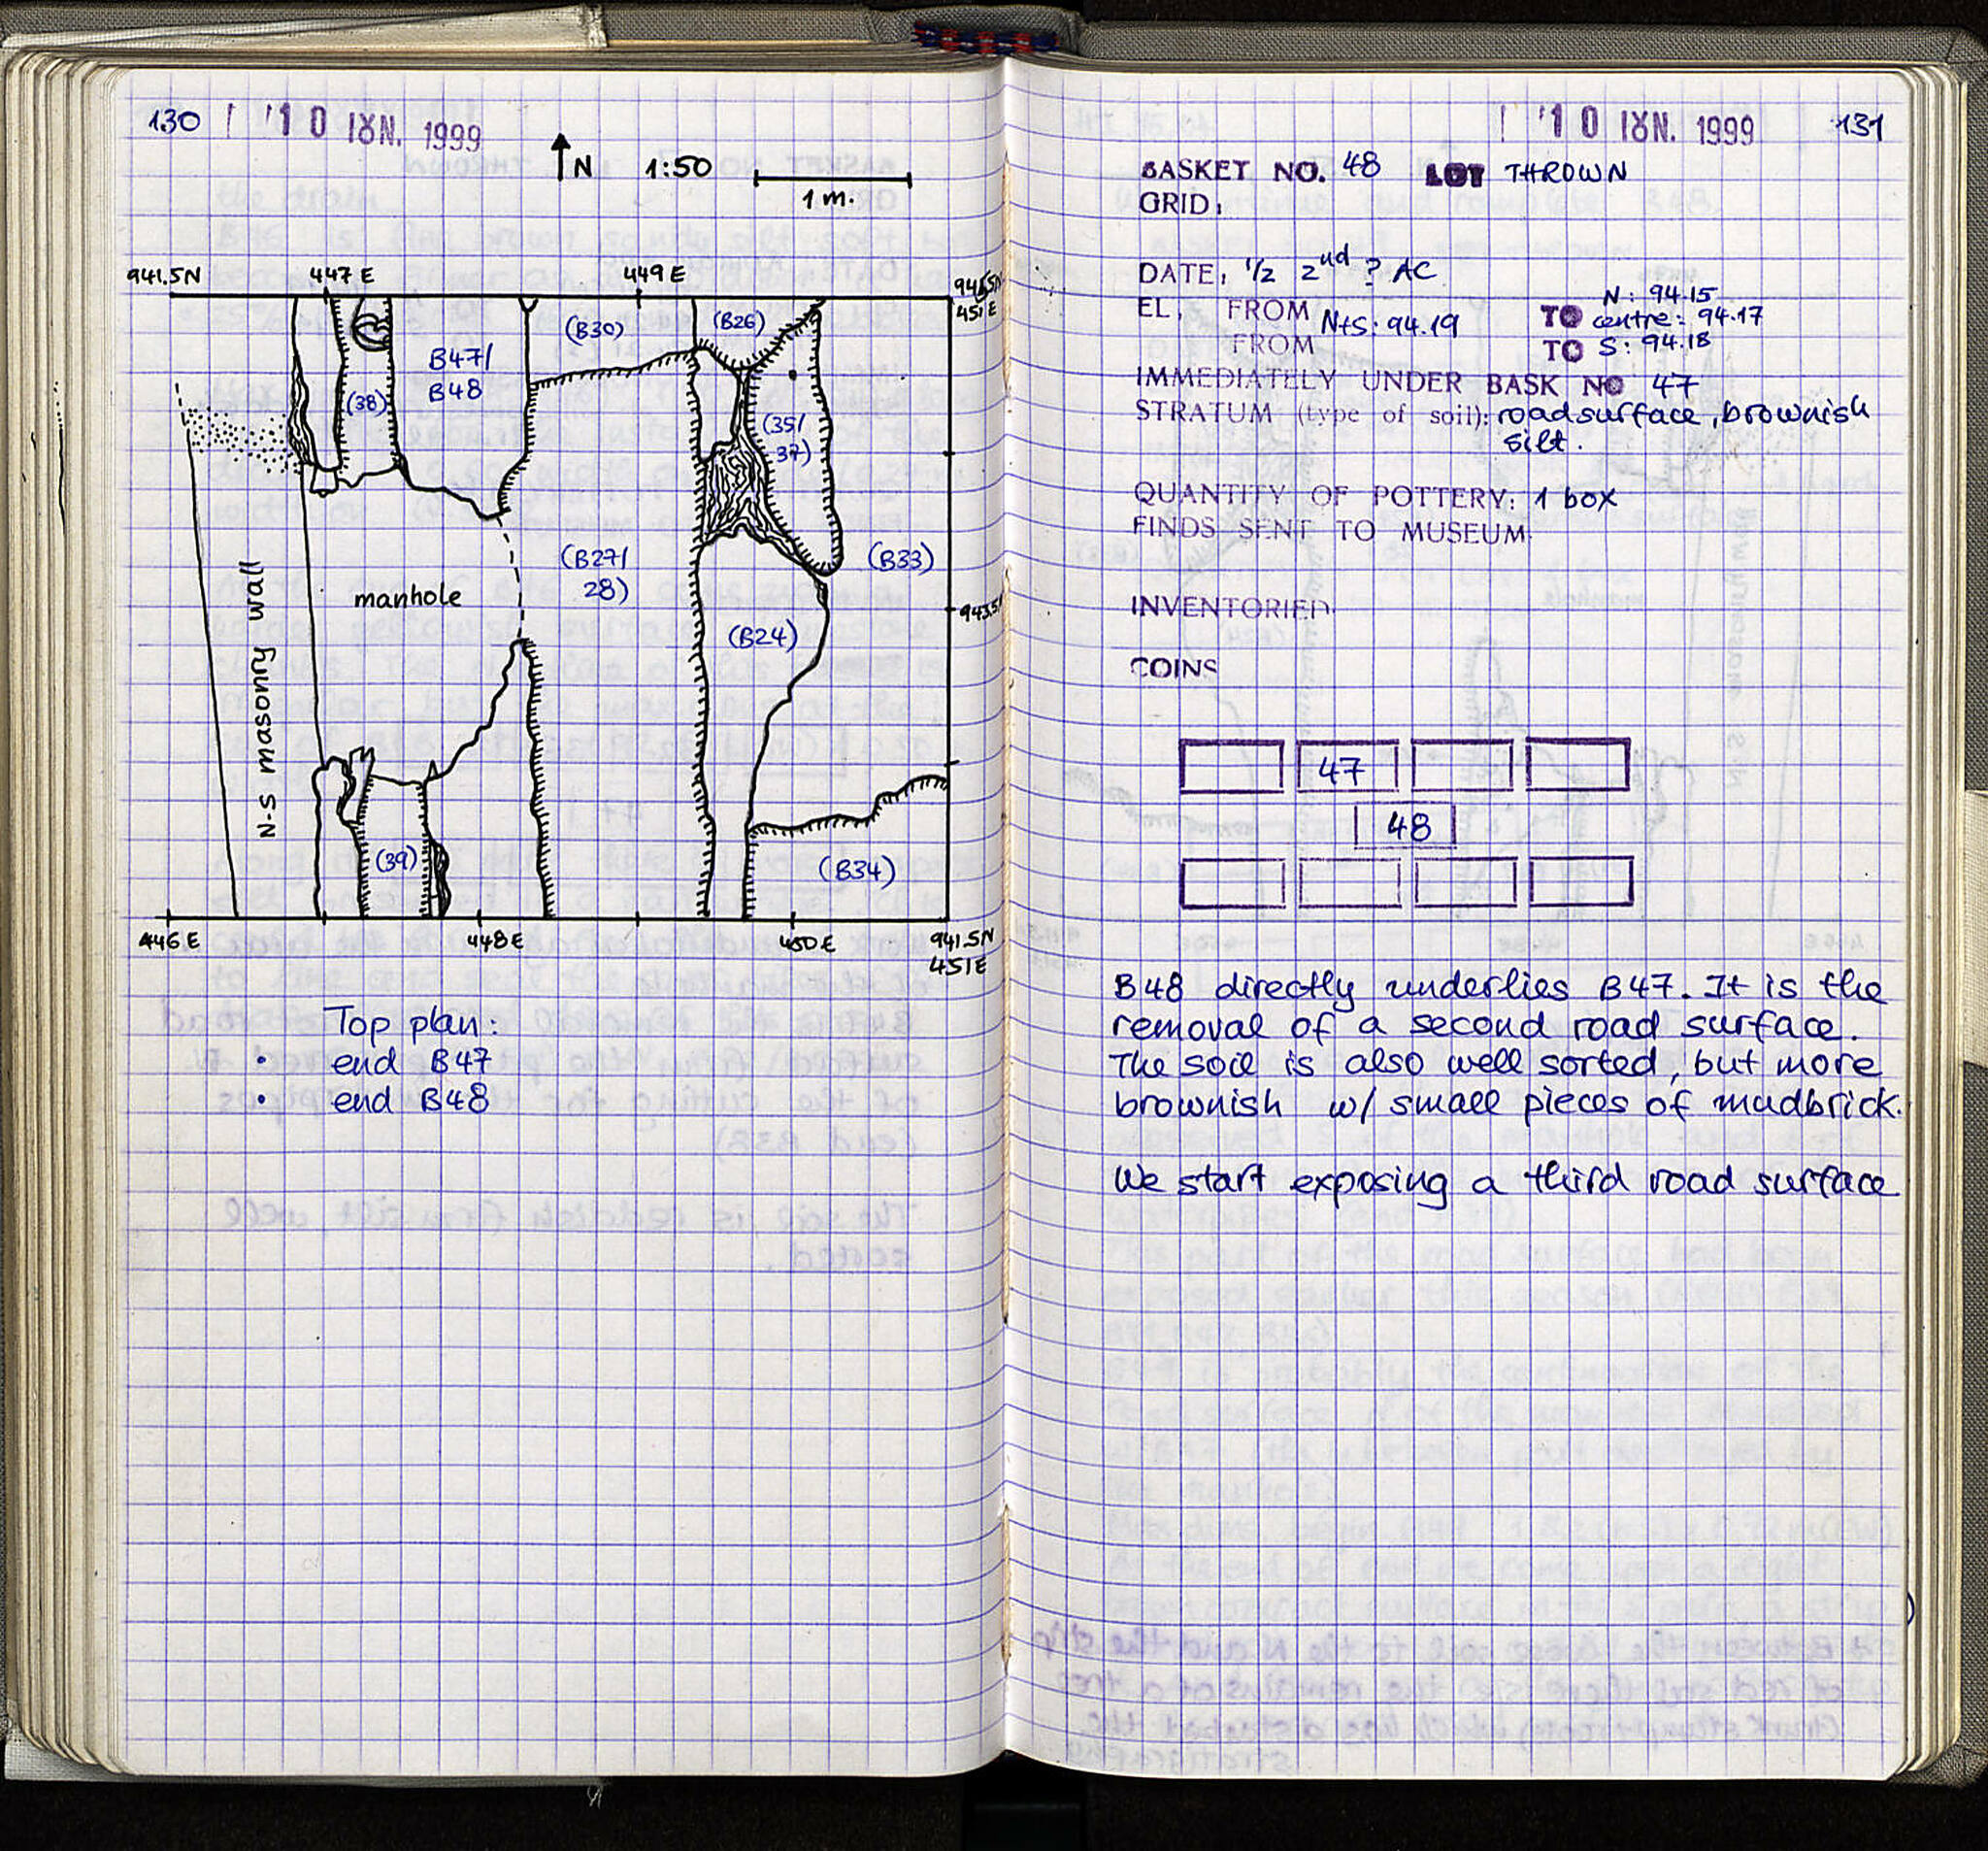 130
10 ΙΟΥΝ. 1999
N 1:50
1 m.
941.5N 447 E 449 E
451 E
(B30) (B26)
B47/
B48
(38)
(35/
37)
(B27/
28)
(B33)
manhole
943.5N
(B24)
N-S masonry wall
(39)
(B34)
446 E 448 E 450 E 941.5N
451 E
Top plan:
• end B47
• end B48
10 ΙΟΥΝ. 1999 131
BASKET NO. 48 LOT THROWN
GRID:
DATE: 1/2 2nd ? AC
EL. FROM N+S: 94.19 TO N: 94.15
centre: 94.17
FROM TO S: 94.18
IMMEDIATELY UNDER BASK NO 47
STRATUM (type of soil): road surface, brownish
silt.
QUANTITY OF POTTERY: 1 box
FINDS SENT TO MUSEUM:
INVENTORIED:
COINS
47
48
B48 directly underlies B47. It is the
removal of a second road surface.
The soil is also well sorted, but more
brownish w/ small pieces of mudbrick.
We start exposing a third road surface